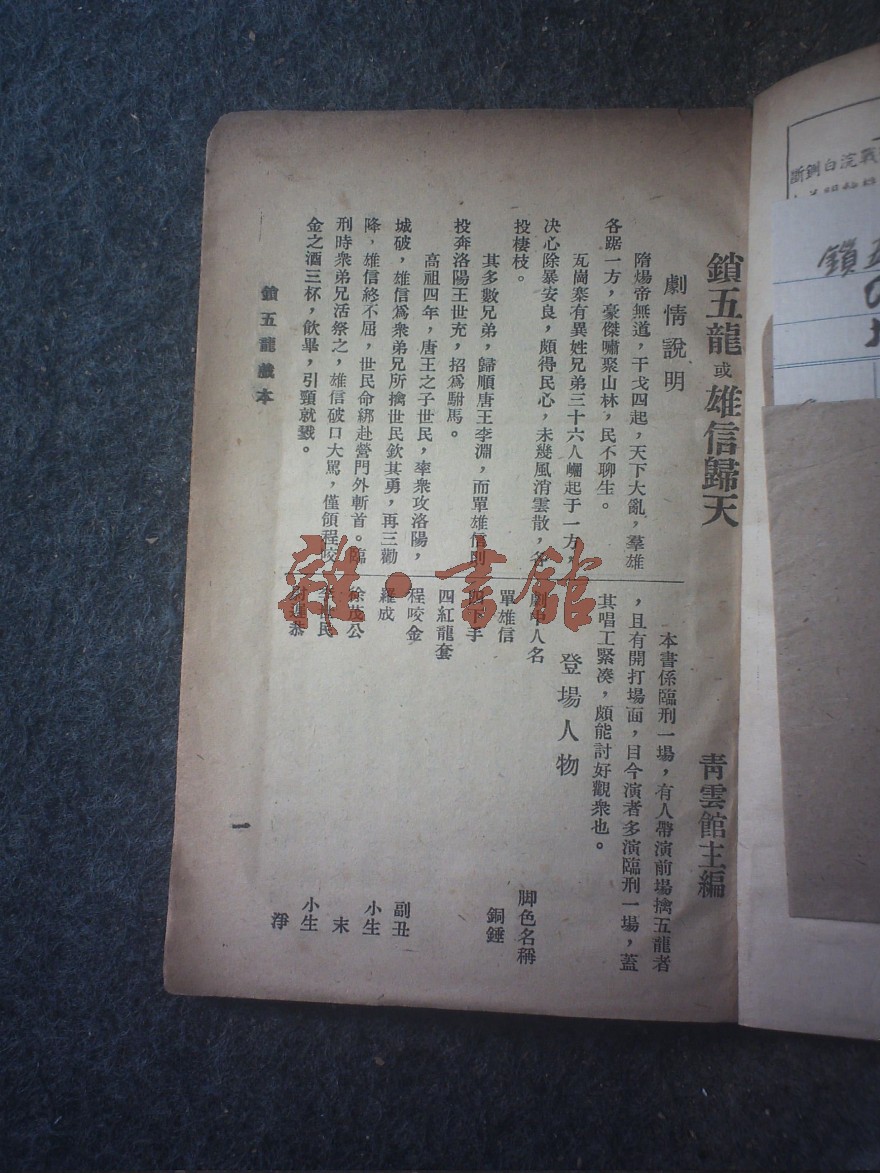 鎖五龍或雄信歸天
青雲館主編
劇情說明
隋煬帝無道，干戈四起，天下大亂，羣雄
各踞一方，豪傑嘯聚山林，民不聊生。
瓦崗寨有異姓兄弟三十六人崛起于一方，
决心除暴安良，頗得民心，未幾風消雲散，各
投棲枝。
其多數兄弟，歸順唐王李淵，而單雄信則
投奔洛陽王世充，招爲駙馬。
高祖四年，唐王之子世民，率衆攻洛陽，
城破，雄信爲衆弟兄所擒世民欽其勇，再三勸
降，雄信終不屈，世民命綁赴營門外斬首。臨
刑時衆弟兄活祭之，雄信破口大駡，僅領程咬
金之酒三杯，飲畢，引頸就戮。
本書係臨刑一場，有人帶演前場擒五龍者
，且有開打場面，目今演者多演臨刑一場，蓋
其唱工緊凑，頗能討好觀衆也。
登場人物
劇中人名 脚色名稱
單雄信 銅錘
四下手
四紅龍套
程咬金 副丑
羅成 小生
徐茂公 末
李世民 小生
尉遲恭 淨
鎖五龍戲本
一
雜·書館
斷鋼白浣戰
鎖五